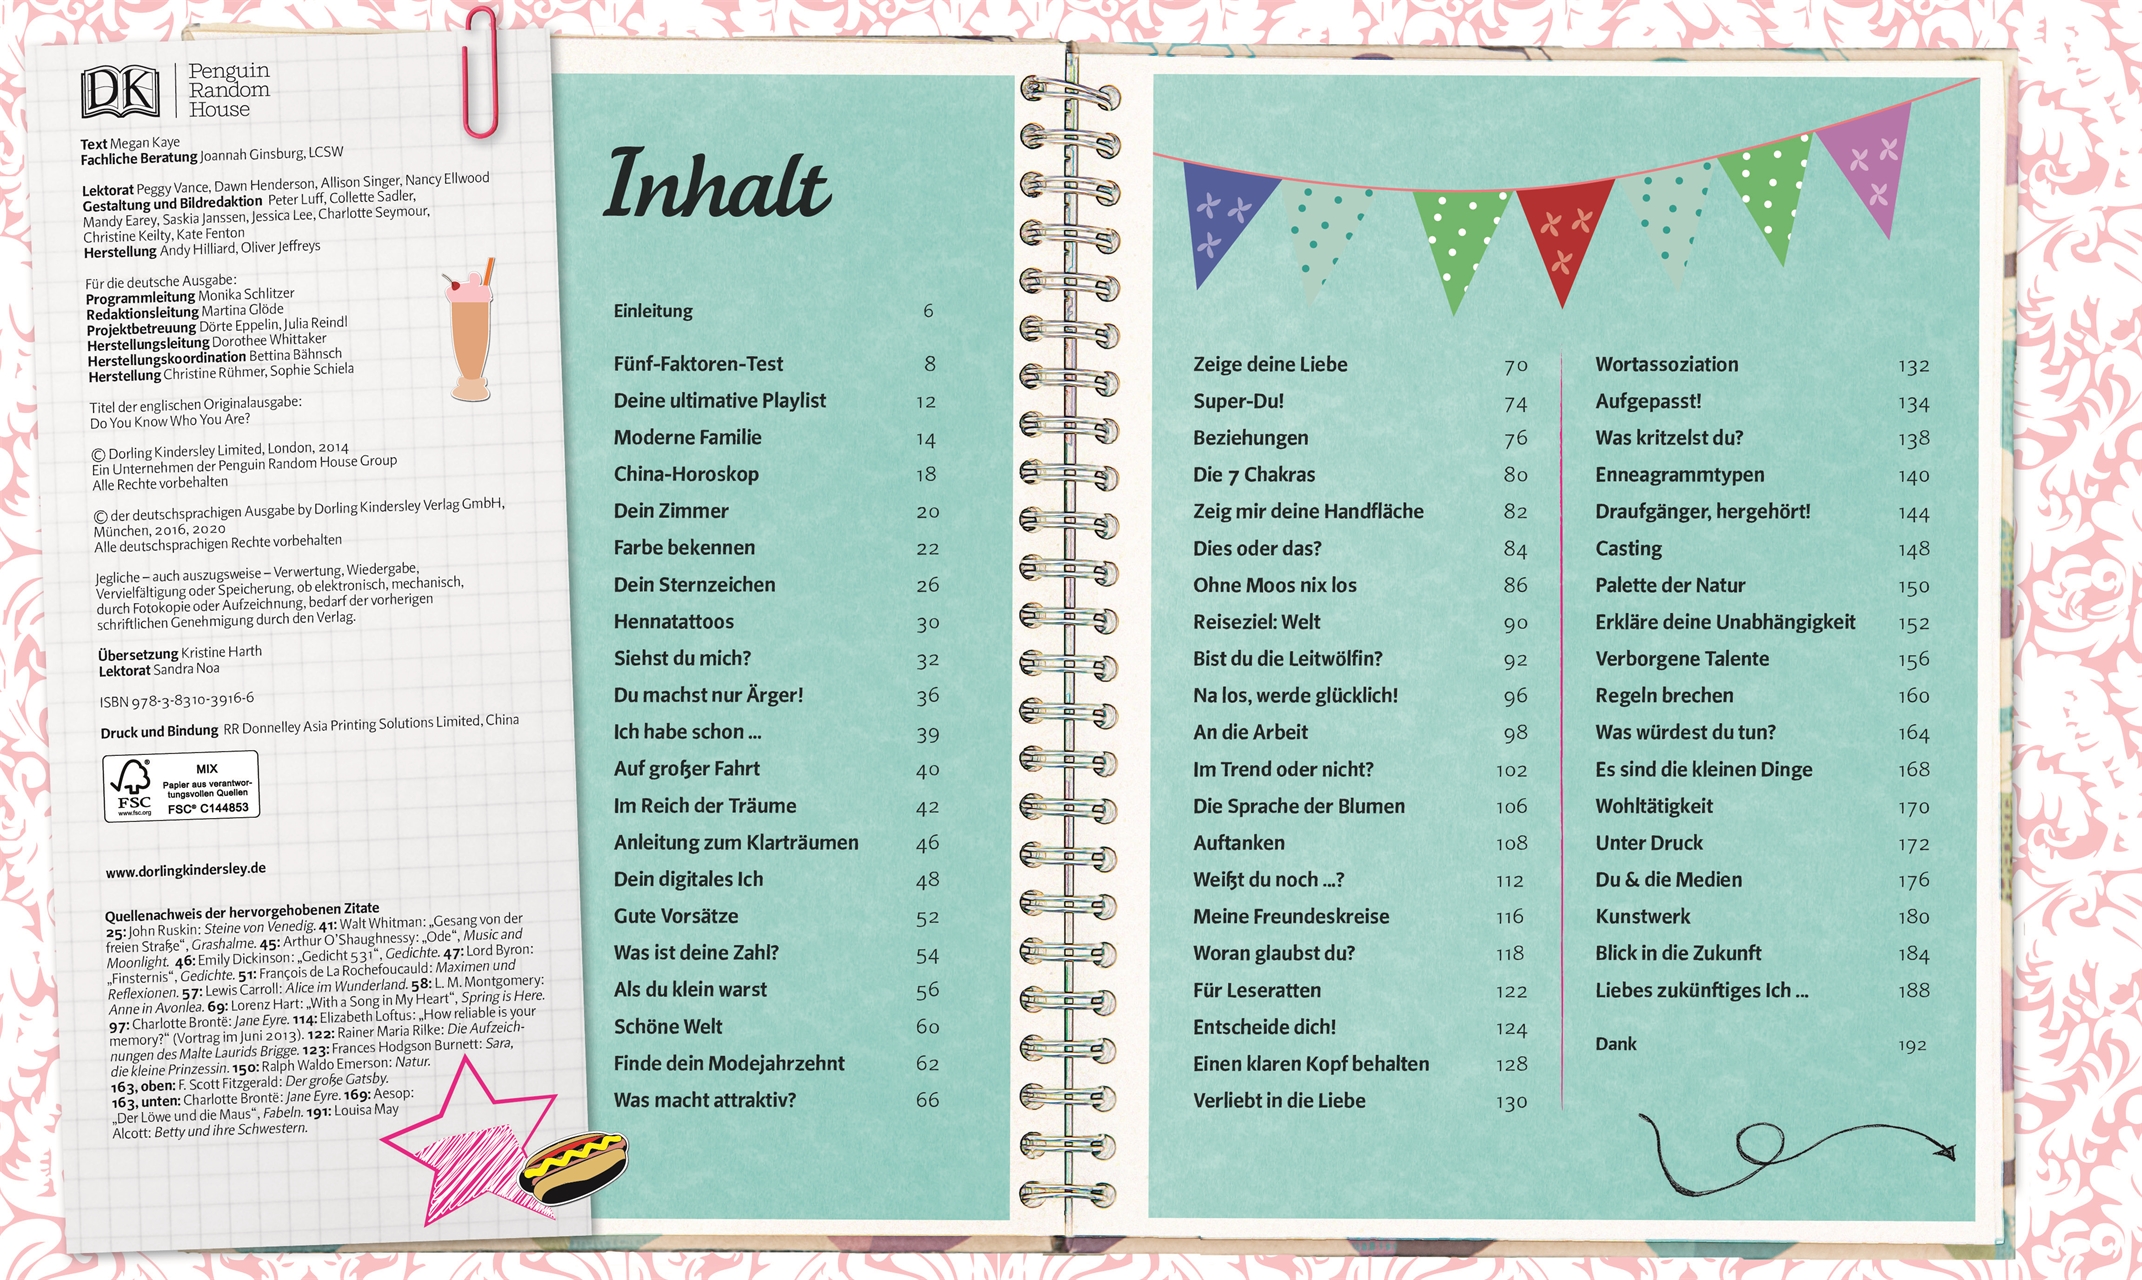 DK
Penguin
Random
House
Text Megan Kaye
Fachliche Beratung Joannah Ginsburg, LCSW
Lektorat Peggy Vance, Dawn Henderson, Allison Singer, Nancy Ellwood
Gestaltung und Bildredaktion Peter Luff, Collette Sadler,
Mandy Earey, Saskia Janssen, Jessica Lee, Charlotte Seymour,
Christine Keilty, Kate Fenton
Herstellung Andy Hilliard, Oliver Jeffreys
Für die deutsche Ausgabe:
Programmleitung Monika Schlitzer
Redaktionsleitung Martina Glöde
Projektbetreuung Dörte Eppelin, Julia Reindl
Herstellungsleitung Dorothee Whittaker
Herstellungskoordination Bettina Bähnsch
Herstellung Christine Rühmer, Sophie Schiela
Titel der englischen Originalausgabe:
Do You Know Who You Are?
© Dorling Kindersley Limited, London, 2014
Ein Unternehmen der Penguin Random House Group
Alle Rechte vorbehalten
© der deutschsprachigen Ausgabe by Dorling Kindersley Verlag GmbH,
München, 2016, 2020
Alle deutschsprachigen Rechte vorbehalten
Jegliche – auch auszugsweise – Verwertung, Wiedergabe,
Vervielfältigung oder Speicherung, ob elektronisch, mechanisch,
durch Fotokopie oder Aufzeichnung, bedarf der vorherigen
schriftlichen Genehmigung durch den Verlag.
Übersetzung Kristine Harth
Lektorat Sandra Noa
ISBN 978-3-8310-3916-6
Druck und Bindung RR Donnelley Asia Printing Solutions Limited, China
FSC
www.fsc.org
MIX
Papier aus verantwor-
tungsvollen Quellen
FSC® C144853
www.dorlingkindersley.de
Quellenachweis der hervorgehobenen Zitate
25: John Ruskin: Steine von Venedig. 41: Walt Whitman: „Gesang von der
freien Straße“, Grashalme. 45: Arthur O’Shaughnessy: „Ode“, Music and
Moonlight. 46: Emily Dickinson: „Gedicht 531“, Gedichte. 47: Lord Byron:
„Finsternis“, Gedichte. 51: François de La Rochefoucauld: Maximen und
Reflexionen. 57: Lewis Carroll: Alice im Wunderland. 58: L. M. Montgomery:
Anne in Avonlea. 69: Lorenz Hart: „With a Song in My Heart“, Spring is Here.
97: Charlotte Brontë: Jane Eyre. 114: Elizabeth Loftus: „How reliable is your
memory?“ (Vortrag im Juni 2013). 122: Rainer Maria Rilke: Die Aufzeich-
nungen des Malte Laurids Brigge. 123: Frances Hodgson Burnett: Sara,
die kleine Prinzessin. 150: Ralph Waldo Emerson: Natur.
163, oben: F. Scott Fitzgerald: Der große Gatsby.
163, unten: Charlotte Brontë: Jane Eyre. 169: Aesop:
„Der Löwe und die Maus“, Fabeln. 191: Louisa May
Alcott: Betty und ihre Schwestern.
Inhalt
Einleitung 6
Fünf-Faktoren-Test 8
Deine ultimative Playlist 12
Moderne Familie 14
China-Horoskop 18
Dein Zimmer 20
Farbe bekennen 22
Dein Sternzeichen 26
Hennatattoos 30
Siehst du mich? 32
Du machst nur Ärger! 36
Ich habe schon ... 39
Auf großer Fahrt 40
Im Reich der Träume 42
Anleitung zum Klarträumen 46
Dein digitales Ich 48
Gute Vorsätze 52
Was ist deine Zahl? 54
Als du klein warst 56
Schöne Welt 60
Finde dein Modejahrzehnt 62
Was macht attraktiv? 66
Zeige deine Liebe 70
Super-Du! 74
Beziehungen 76
Die 7 Chakras 80
Zeig mir deine Handfläche 82
Dies oder das? 84
Ohne Moos nix los 86
Reiseziel: Welt 90
Bist du die Leitwölfin? 92
Na los, werde glücklich! 96
An die Arbeit 98
Im Trend oder nicht? 102
Die Sprache der Blumen 106
Auftanken 108
Weißt du noch ...? 112
Meine Freundeskreise 116
Woran glaubst du? 118
Für Leseratten 122
Entscheide dich! 124
Einen klaren Kopf behalten 128
Verliebt in die Liebe 130
Wortassoziation 132
Aufgepasst! 134
Was kritzelst du? 138
Enneagrammtypen 140
Draufgänger, hergehört! 144
Casting 148
Palette der Natur 150
Erkläre deine Unabhängigkeit 152
Verborgene Talente 156
Regeln brechen 160
Was würdest du tun? 164
Es sind die kleinen Dinge 168
Wohltätigkeit 170
Unter Druck 172
Du & die Medien 176
Kunstwerk 180
Blick in die Zukunft 184
Liebes zukünftiges Ich ... 188
Dank 192